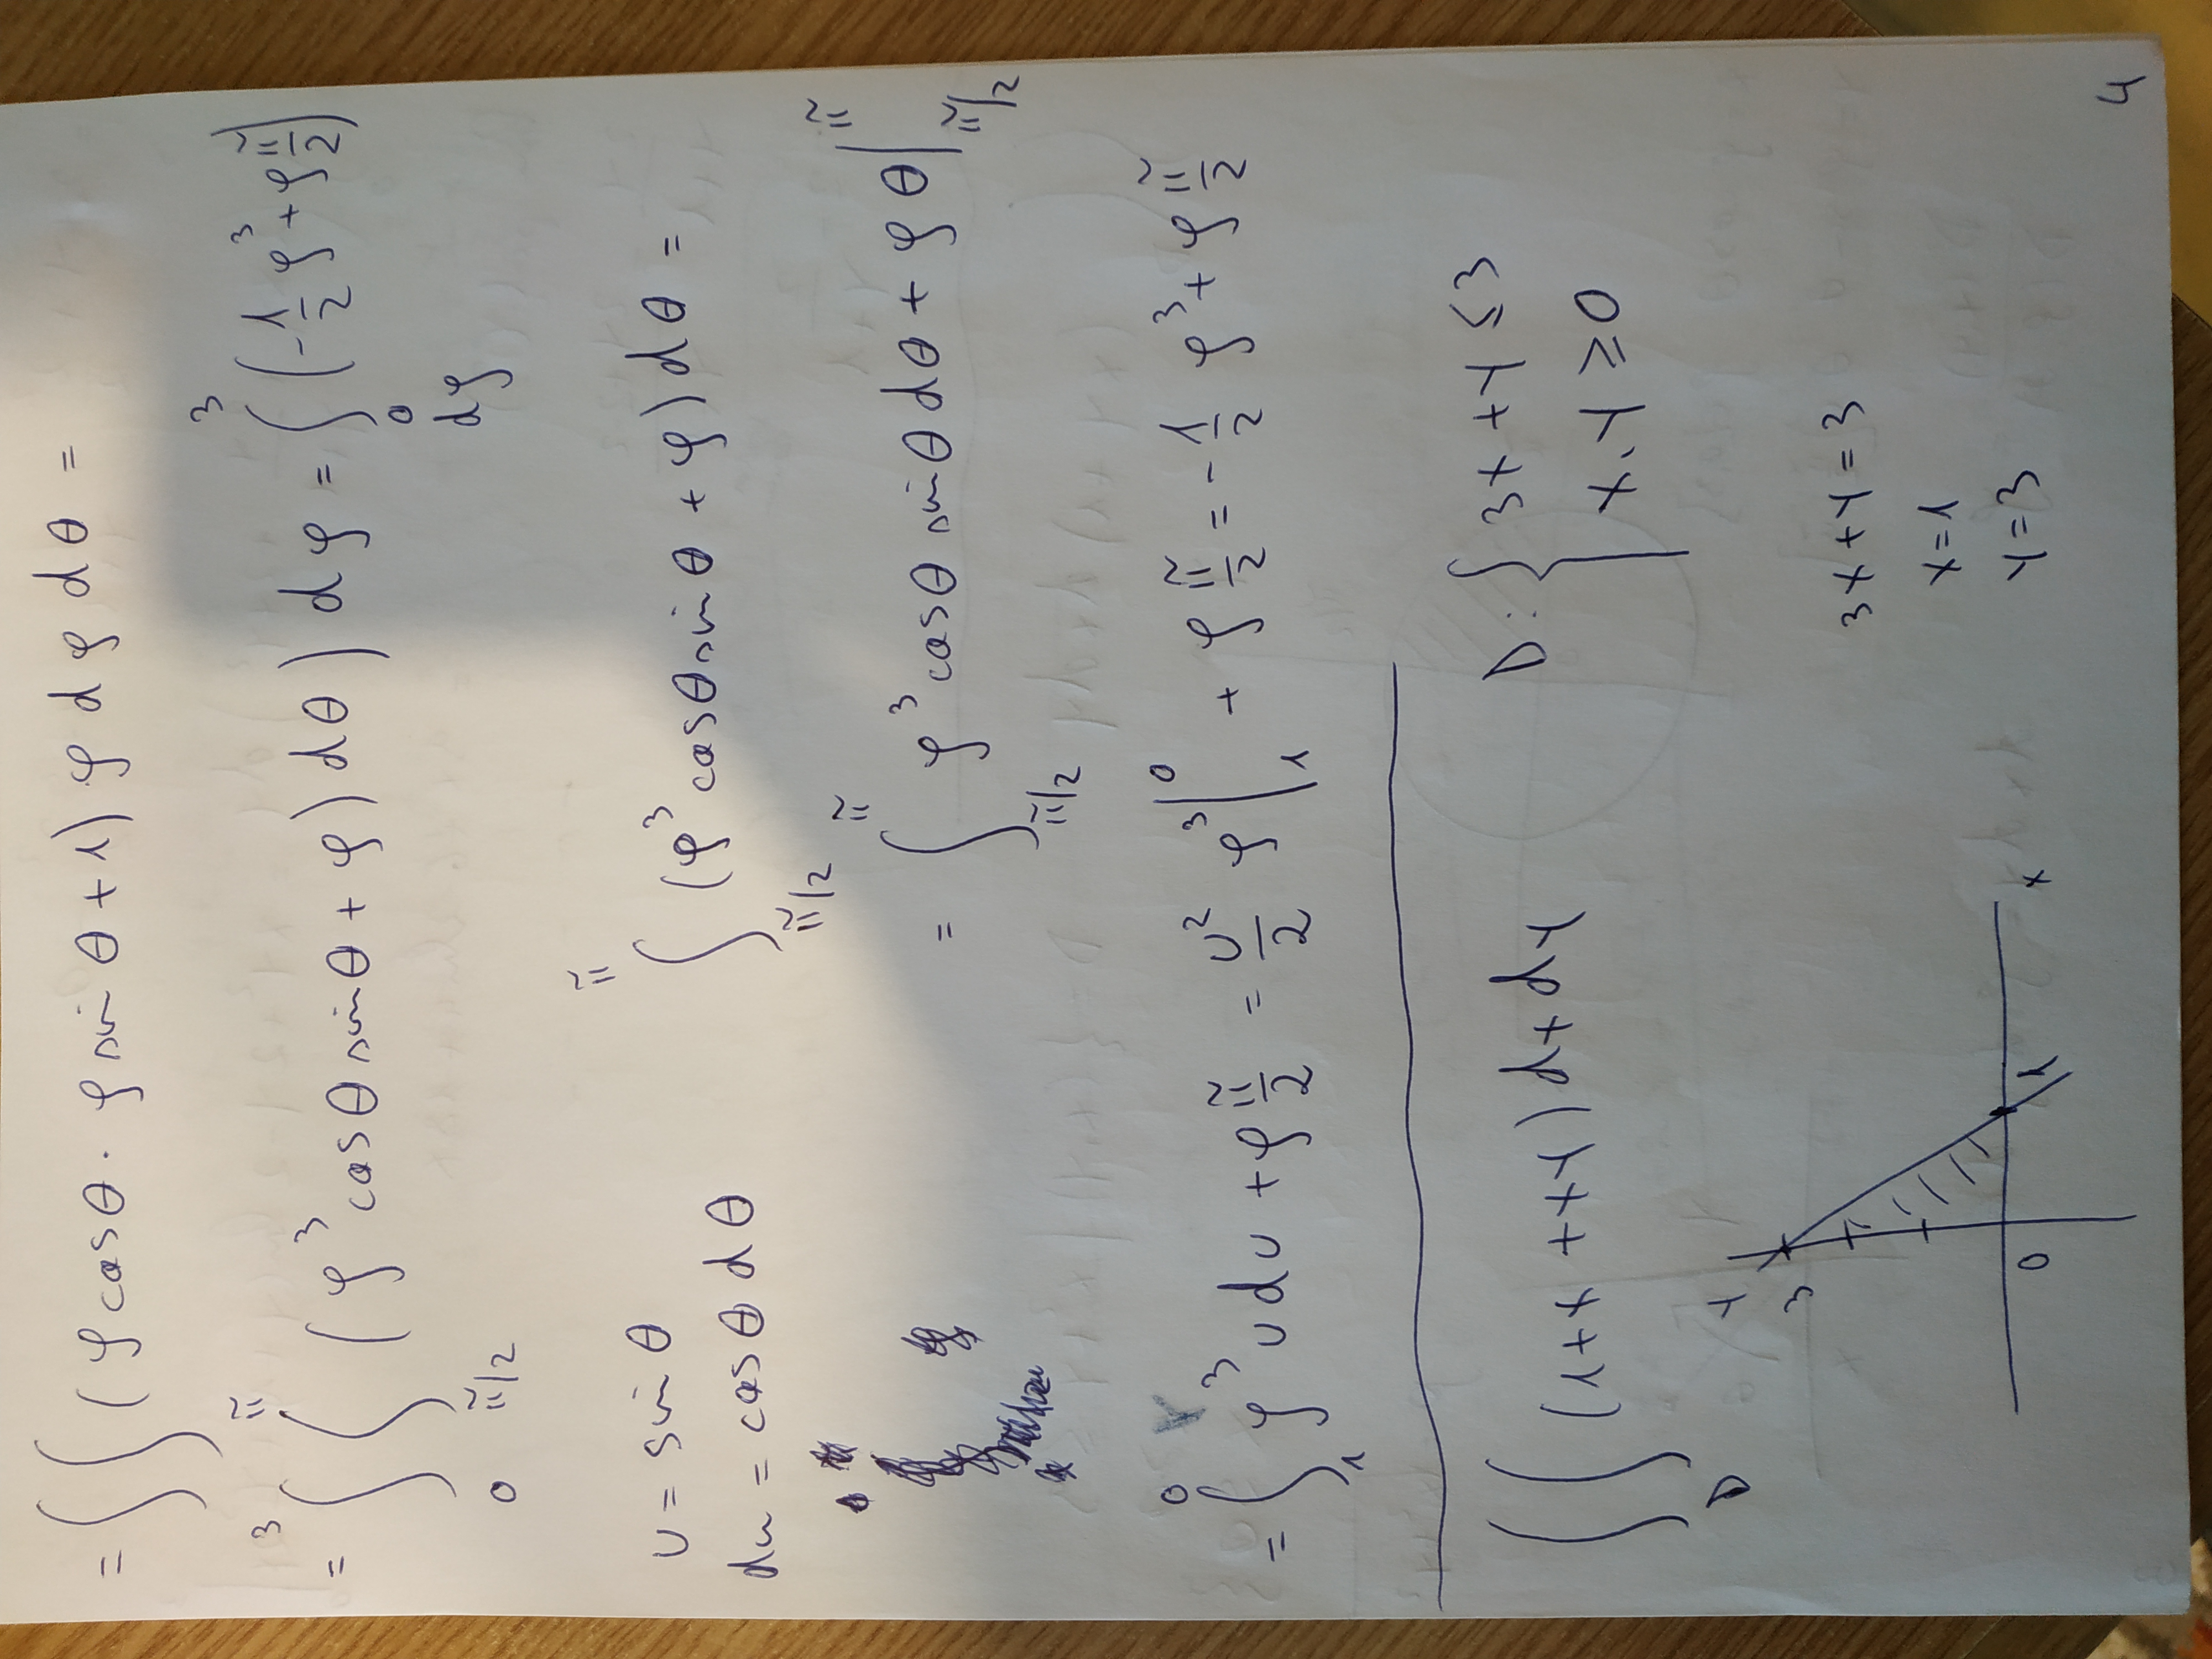 = ∫∫ (ρ cos θ · ρ sin θ + 1) ρ dρ dθ =
= ∫₀³ ∫_{π/2}^{π} (ρ³ cos θ sin θ + ρ) dθ) dρ = ∫₀³ (-1/2 ρ³ + ρ π/2)
dρ
u = sin θ
∫_{π/2}^{π} (ρ³ cos θ sin θ + ρ) dθ =
du = cos θ dθ
= ∫_{π/2}^{π} ρ³ cos θ sin θ dθ + ρ θ |_{π/2}^{π}
= ∫₁⁰ ρ³ u du + ρ π/2 = u²/2 ρ³ |₁⁰ + ρ π/2 = - 1/2 ρ³ + ρ π/2
∫∫_D (1+x+xy) dx dy
D: { 3x + y ≤ 3
x, y ≥ 0
y
3
0
1
x
3x + y = 3
x = 1
y = 3
4